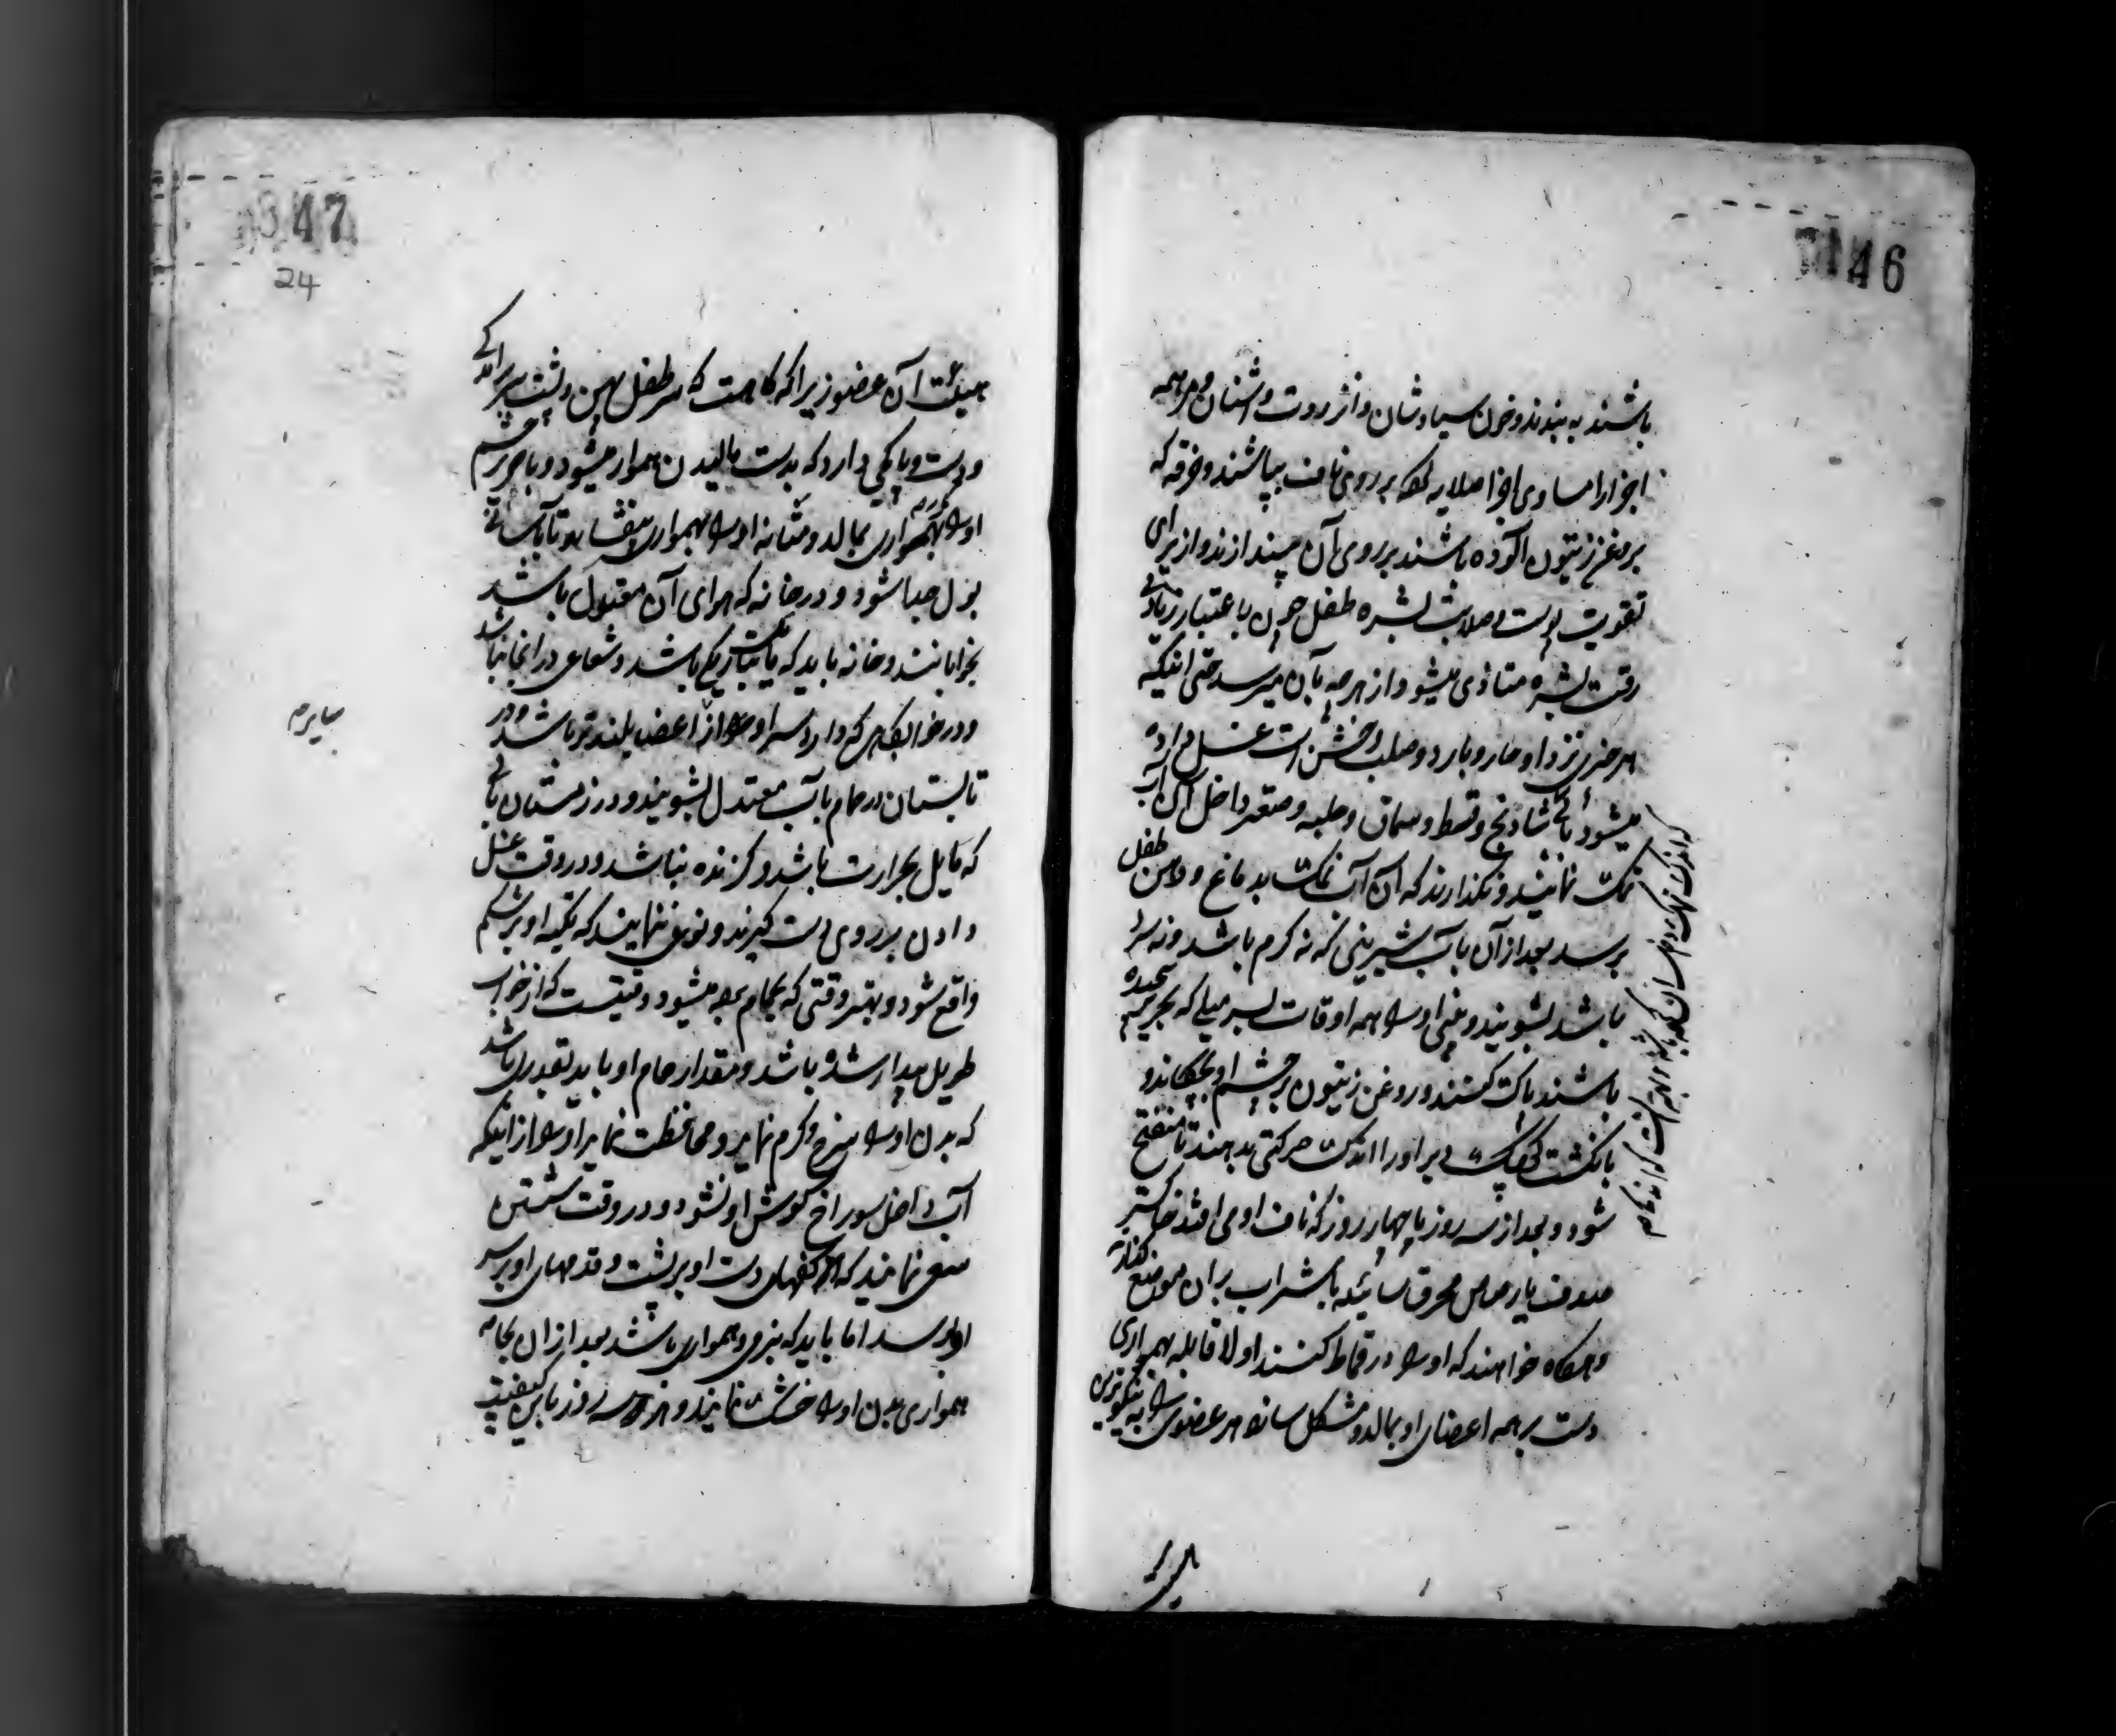 46
باشند به بندند و خون سیاوشان و انزروت و اشنان و مر همه
اجزا را مساوی اجزا صلایه کرده بر روی ناف بپاشند و خرقه که
بروغن زیتون آلوده باشند بر روی آن بیندازند و از برای
تقویت پوست و صلابت بشره طفل چون باعتبار زیادتی
رقت بشره متأذی میشود از هر چه بآن میرسد حتی اینکه
هر چیزی نزد او حار و بارد و صلب و خشن است غسل داده
میشود بآب شادنج و قسط و سماق و حلبه و صعتر داخل آن آب
نمک نمایند و نگذارند که آن آب نمک بدماغ و دهن طفل
برسد بعد از آن بآب شیرینی که نه گرم باشد و نه سرد
باشد بشویند و بینی او را همه اوقات بسر میلی که بحریر پیچیده
باشند پاک کنند و روغن زیتون بر چشم او بچکانند و
بانگشت کوچک دبر او را اندک حرکتی بدهند تا منفتح
شود و بعد از سه روز یا چهار روز که ناف او می افتد خاکستر
صدف یا رصاص محرق سائیده با شراب بران موضع گذارند
و هرگاه خواهند که او را در قماط کنند اولا قابله بهمواری
دست بر همه اعضای او بمالد و مشکل سازد هر عضوی را به نیکوترین
347
24
هیئت آن عضو زیرا که گاهست که سر طفل پهن و پشت سر برآمدگی
و دست و پا کجی دارد که بدست مالیدن هموار میشود و با حریر چشم
او را بهمواری بمالد و مثانه او را بهمواری بیفشارد تا بآسانی
بول جدا شود و در خانه که هوای آن معتدل باشد
بخوابانند و خانه باید که تاریکی باشد و شعاعی در آنجا نباشد
و در خوابگاهی که دارد سر او را از اعضا بلندتر باشد و در
تابستان در حمام بآب معتدل بشویند و در زمستان بآبی
که مایل بحرارت باشد و گزنده نباشد و در وقت غسل
دادن بر روی دست گیرند و نوعی نمایند که تکیه او بر شکم
واقع شود و بهتر وقتی که بحمام برده میشود وقتیست که از خواب
طویل بیدار شده باشد و مقدار حمام او باید بقدری باشد
که بدن او را سرخ و گرم نماید و محافظت نماید او را از اینکه
آب داخل سوراخ گوش او نشود و در وقت شستن
سعی نمایند که کفهای دست او بر پشت و قدمهای او بر سر
او برسد اما باید که بنرمی و همواری باشد بعد از آن بجامه
همواری بدن او را خشک نمایند و هر سه روز باین کیفیت